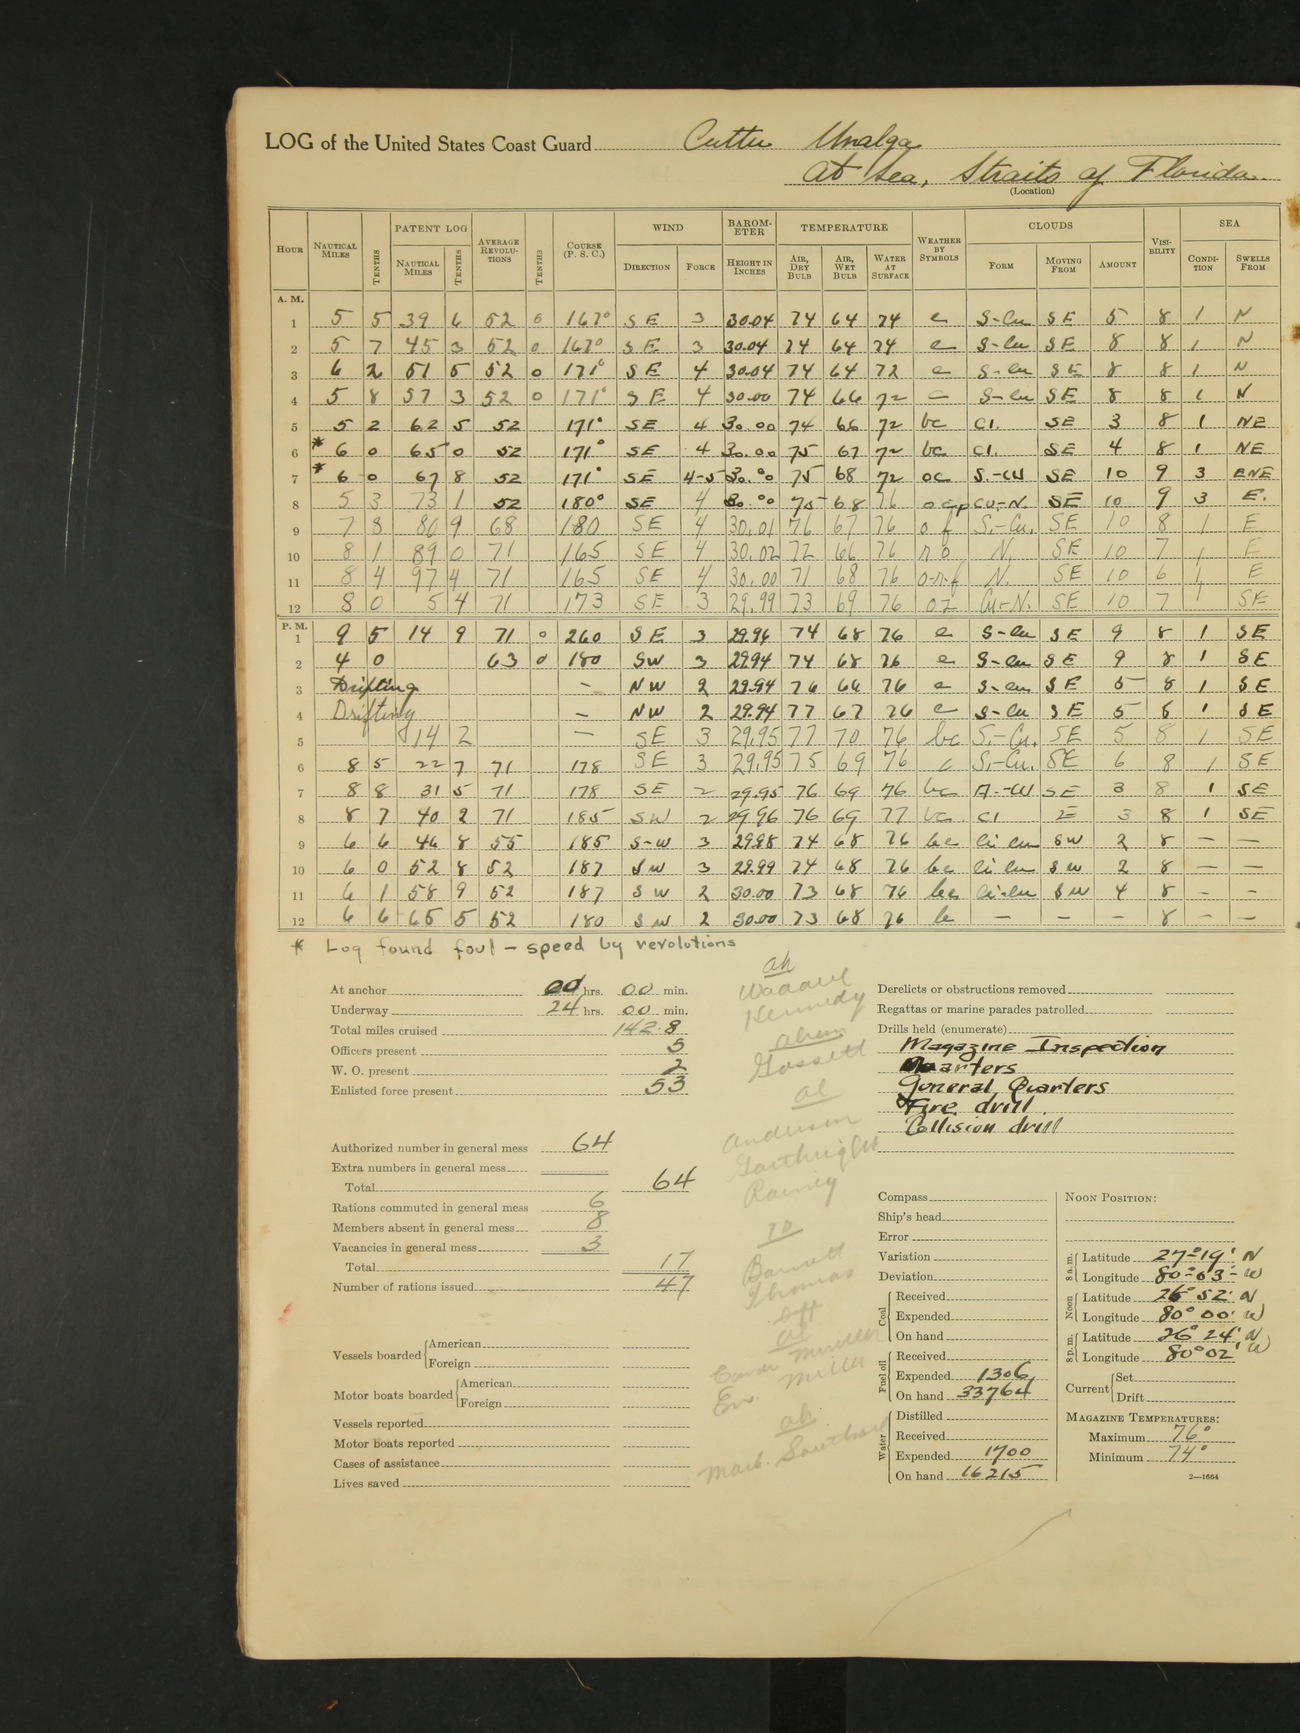 LOG of the United States Coast Guard Cutter Unalga
At Sea, Straits of Florida.
(Location)
HOUR NAUTICAL MILES TENTHS PATENT LOG NAUTICAL MILES TENTHS AVERAGE REVOLUTIONS TENTHS COURSE (P. S. C.) WIND DIRECTION FORCE BAROMETER HEIGHT IN INCHES TEMPERATURE AIR, DRY BULB AIR, WET BULB WATER AT SURFACE WEATHER BY SYMBOLS CLOUDS FORM MOVING FROM AMOUNT VISIBILITY SEA CONDITION SWELLS FROM
A. M.
1 5 5 39 6 52 0 167° SE 3 30.04 74 64 74 c S-Cu SE 5 8 1 N
2 5 7 45 3 52 0 167° SE 3 30.04 74 64 74 c S-Cu SE 8 8 1 N
3 6 2 51 5 52 0 171° SE 4 30.04 74 64 72 c S-Cu SE 8 8 1 N
4 5 8 57 3 52 0 171° SE 4 30.00 74 66 72 c S-Cu SE 8 8 1 N
5 5 2 62 5 52 171° SE 4 30.00 74 66 72 bc CI. SE 3 8 1 NE
* 6 6 0 65 0 52 171° SE 4 30.00 75 67 72 bc CI. SE 4 8 1 NE
* 7 6 0 67 8 52 171° SE 4-5 30.00 75 68 72 oc S.-CU SE 10 9 3 ENE
8 5 3 73 1 52 180° SE 4 30.00 75 68 76 ocp CU-N. SE 10 9 3 E.
9 7 8 80 9 68 180 SE 4 30.01 76 67 76 o f S.-Cu. SE 10 8 1 E
10 8 1 89 0 71 165 SE 4 30.02 72 66 76 r o N. SE 10 7 1 E
11 8 4 97 4 71 165 SE 4 30.00 71 68 76 o-r-f N. SE 10 6 1 E
12 8 0 5 4 71 173 SE 3 29.99 73 69 76 oz Cu-N. SE 10 7 SE
P. M.
1 9 5 14 9 71 0 260 SE 3 29.96 74 68 76 c S-Cu SE 9 8 1 SE
2 4 0 63 0 180 SW 3 29.94 74 68 76 c S-Cu SE 9 8 1 SE
3 Drifting — NW 2 29.94 76 66 76 c S-Cu SE 5 8 1 SE
4 Drifting — NW 2 29.94 77 67 76 c S-Cu SE 5 8 1 SE
5 14 2 — SE 3 29.95 77 70 76 bc S.-Cu. SE 5 8 1 SE
6 8 5 22 7 71 178 SE 3 29.95 75 69 76 c S.-Cu. SE 6 8 1 SE
7 8 8 31 5 71 178 SE 2 29.95 76 69 76 bc A.-CU SE 3 8 1 SE
8 8 7 40 2 71 185 SW 2 29.96 76 69 77 bc CI E 3 8 1 SE
9 6 6 46 8 55 185 S-W 3 29.98 74 68 76 bc Ci Cu SW 2 8 — —
10 6 0 52 8 52 187 SW 3 29.99 74 68 76 bc Ci Cu SW 2 8 — —
11 6 1 58 9 52 187 SW 2 30.00 73 68 76 bc Ci-Cu SW 4 8 — —
12 6 6 65 5 52 180 SW 2 30.00 73 68 76 b — — — 8 — —
* Log found foul — speed by revolutions
At anchor 00 hrs. 00 min.
Underway 24 hrs. 00 min.
Total miles cruised 142.8
Officers present 5
W. O. present 2
Enlisted force present 53
Authorized number in general mess 64
Extra numbers in general mess
Total 64
Rations commuted in general mess 6
Members absent in general mess 8
Vacancies in general mess 3
Total 17
Number of rations issued 47
Vessels boarded American
Foreign
Motor boats boarded American
Foreign
Vessels reported
Motor boats reported
Cases of assistance
Lives saved
Kennedy
Gossett
al
Anderson
Rainey
Barnett
Thomas
Miller
Derelicts or obstructions removed
Regattas or marine parades patrolled
Drills held (enumerate)
Magazine Inspection
Quarters
General Quarters
Fire drill
Collision drill
Compass
Ship's head
Error
Variation
Deviation
Coal Received
Expended
On hand
Fuel oil Received
Expended 1306
On hand 33764
Water Distilled
Received
Expended 1700
On hand 16215
NOON POSITION:
8 a.m. Latitude 27°-19' N
Longitude 80°-03' W
Noon Latitude 26° 52' N
Longitude 80° 00' W
8 p.m. Latitude 26° 24' N
Longitude 80° 02' W
Current Set
Drift
MAGAZINE TEMPERATURES:
Maximum 76°
Minimum 74°
2—1664